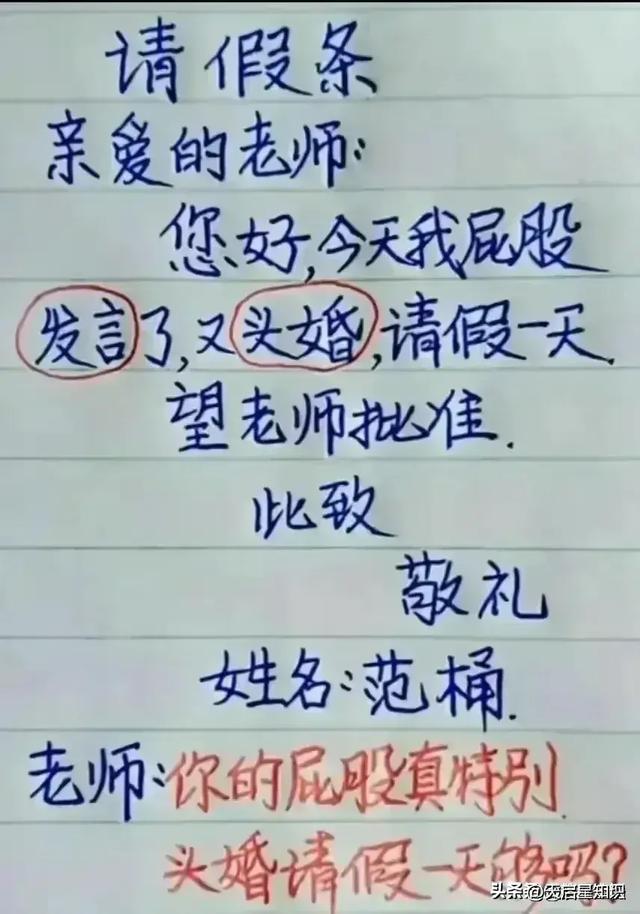 请假条
亲爱的老师:
您好,今天我屁股
发言了,又头婚,请假一天.
望老师批准.
此致
敬礼
姓名:范桶.
老师:你的屁股真特别.
头婚请假一天够吗?
头条@天启星知识